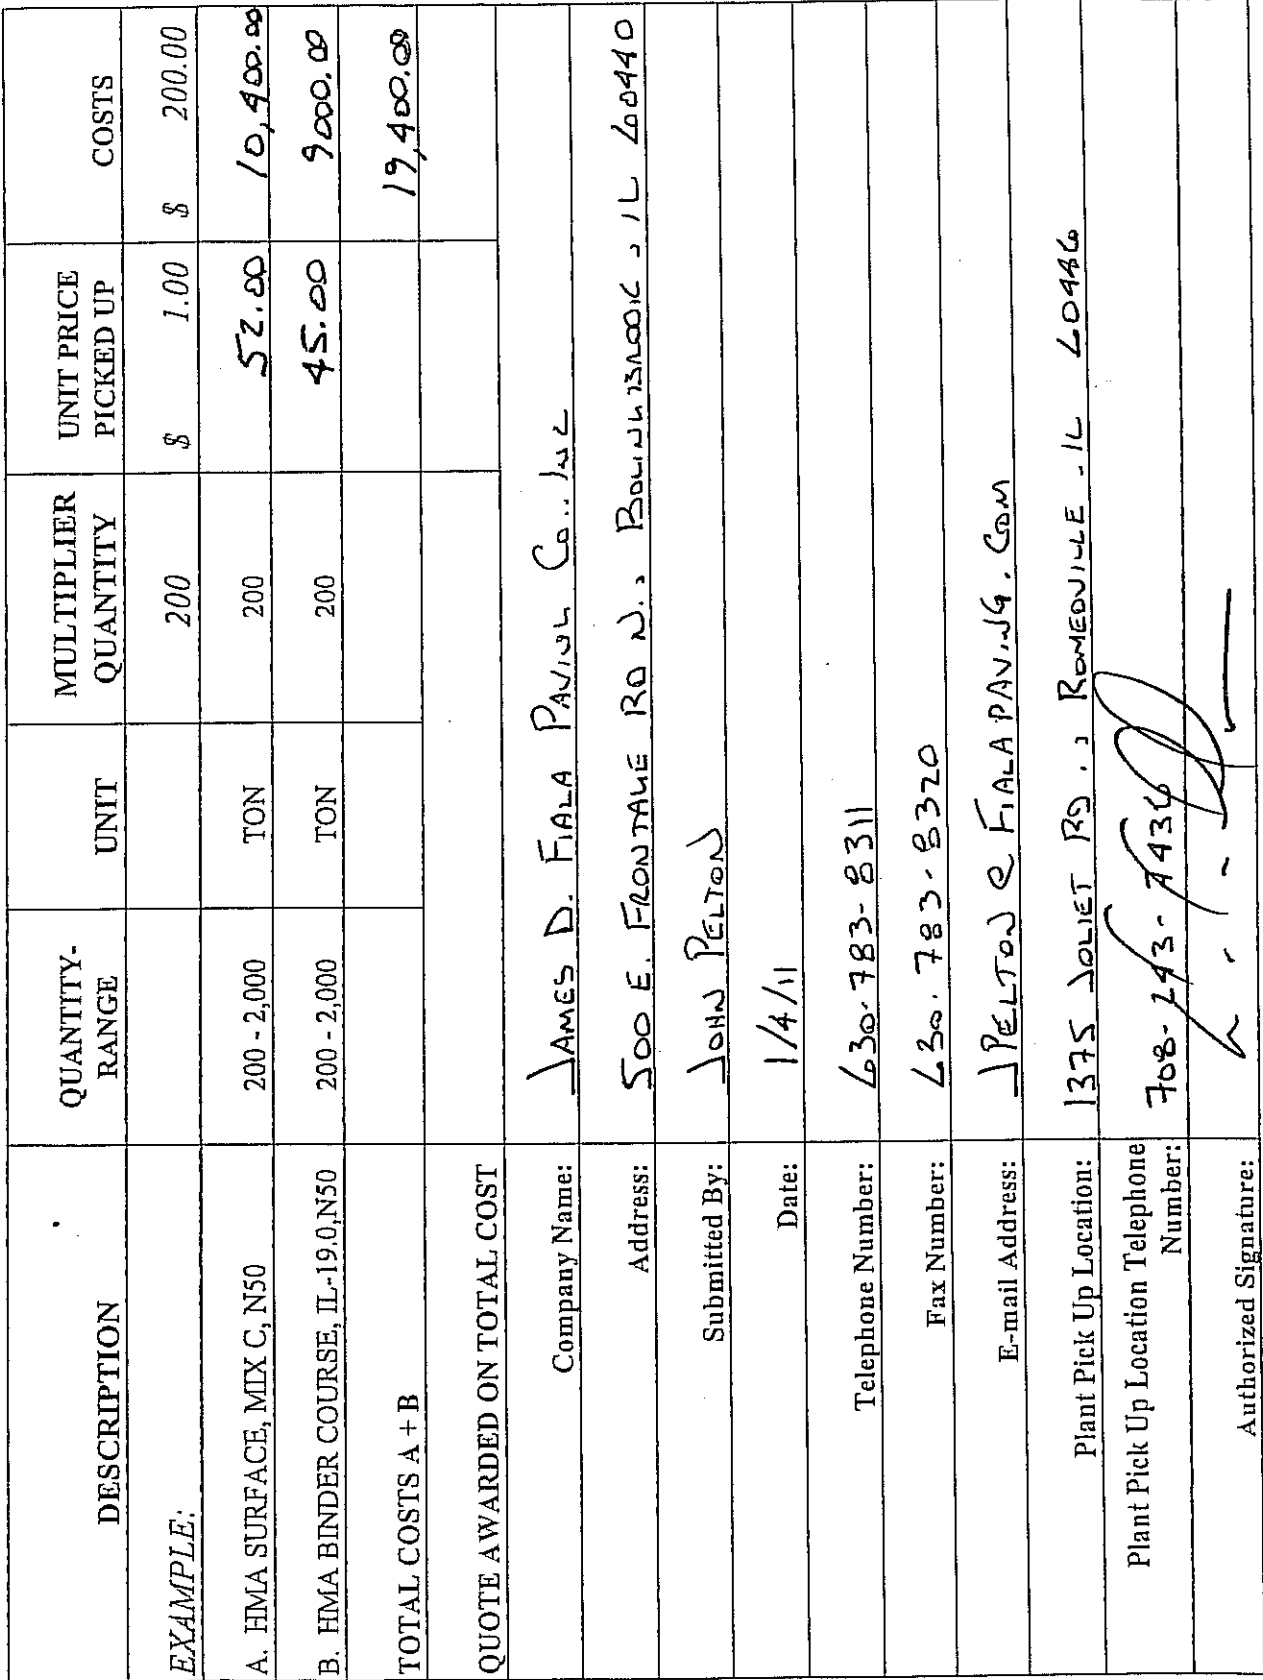 DESCRIPTION QUANTITY-RANGE UNIT MULTIPLIER QUANTITY UNIT PRICE PICKED UP COSTS
EXAMPLE: 200 $ 1.00 $ 200.00
A. HMA SURFACE, MIX C, N50 200 - 2,000 TON 200 52.00 10,400.00
B. HMA BINDER COURSE, IL-19.0,N50 200 - 2,000 TON 200 45.00 9000.00
TOTAL COSTS A + B 19,400.00
QUOTE AWARDED ON TOTAL COST
Company Name: JAMES D. FIALA PAVING CO., INC
Address: 500 E. FRONTAGE RD N., BOLINGBROOK, IL 60440
Submitted By: JOHN PELTON
Date: 1/4/11
Telephone Number: 630-783-8311
Fax Number: 630.783-8320
E-mail Address: JPELTON @ FIALAPAVING.COM
Plant Pick Up Location: 1375 JOLIET RD., ROMEOVILLE - IL 60446
Plant Pick Up Location Telephone Number: 708-
Authorized Signature: